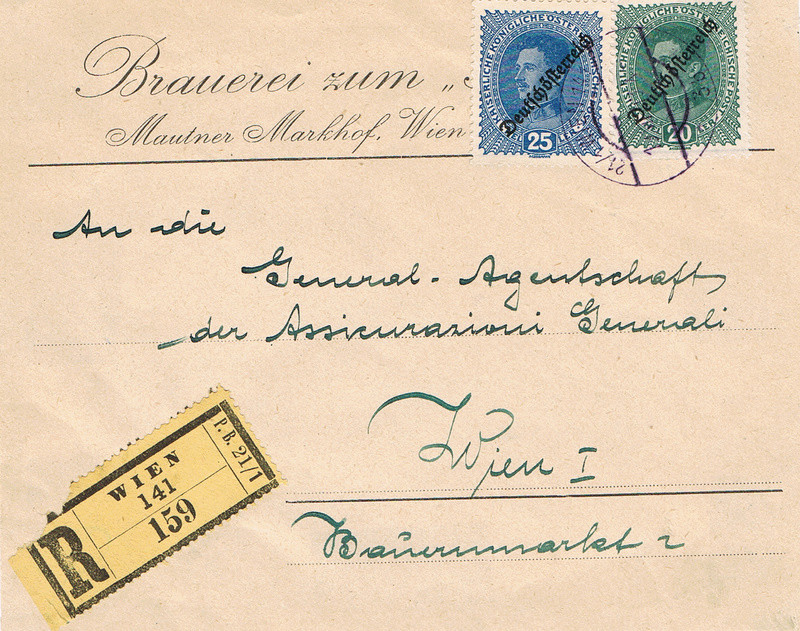 Brauerei zum „
Mautner Markhof, Wien
KAISERLICHE KÖNIGLICHE ÖSTERR
Deutschösterreich
25
KAISERLICHE KÖNIGLICHE ÖSTERREICHISCHE POST
Deutschösterreich
20
An die
General-Agentschaft
der Assicurazioni Generali
Wien I
Bauernmarkt 2
R
WIEN
141
159
P.B. 21/1